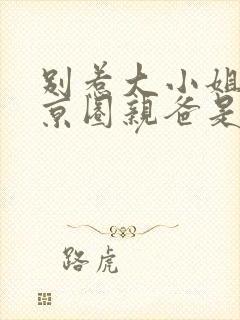 别惹大小姐
京圈亲爸是
路虎